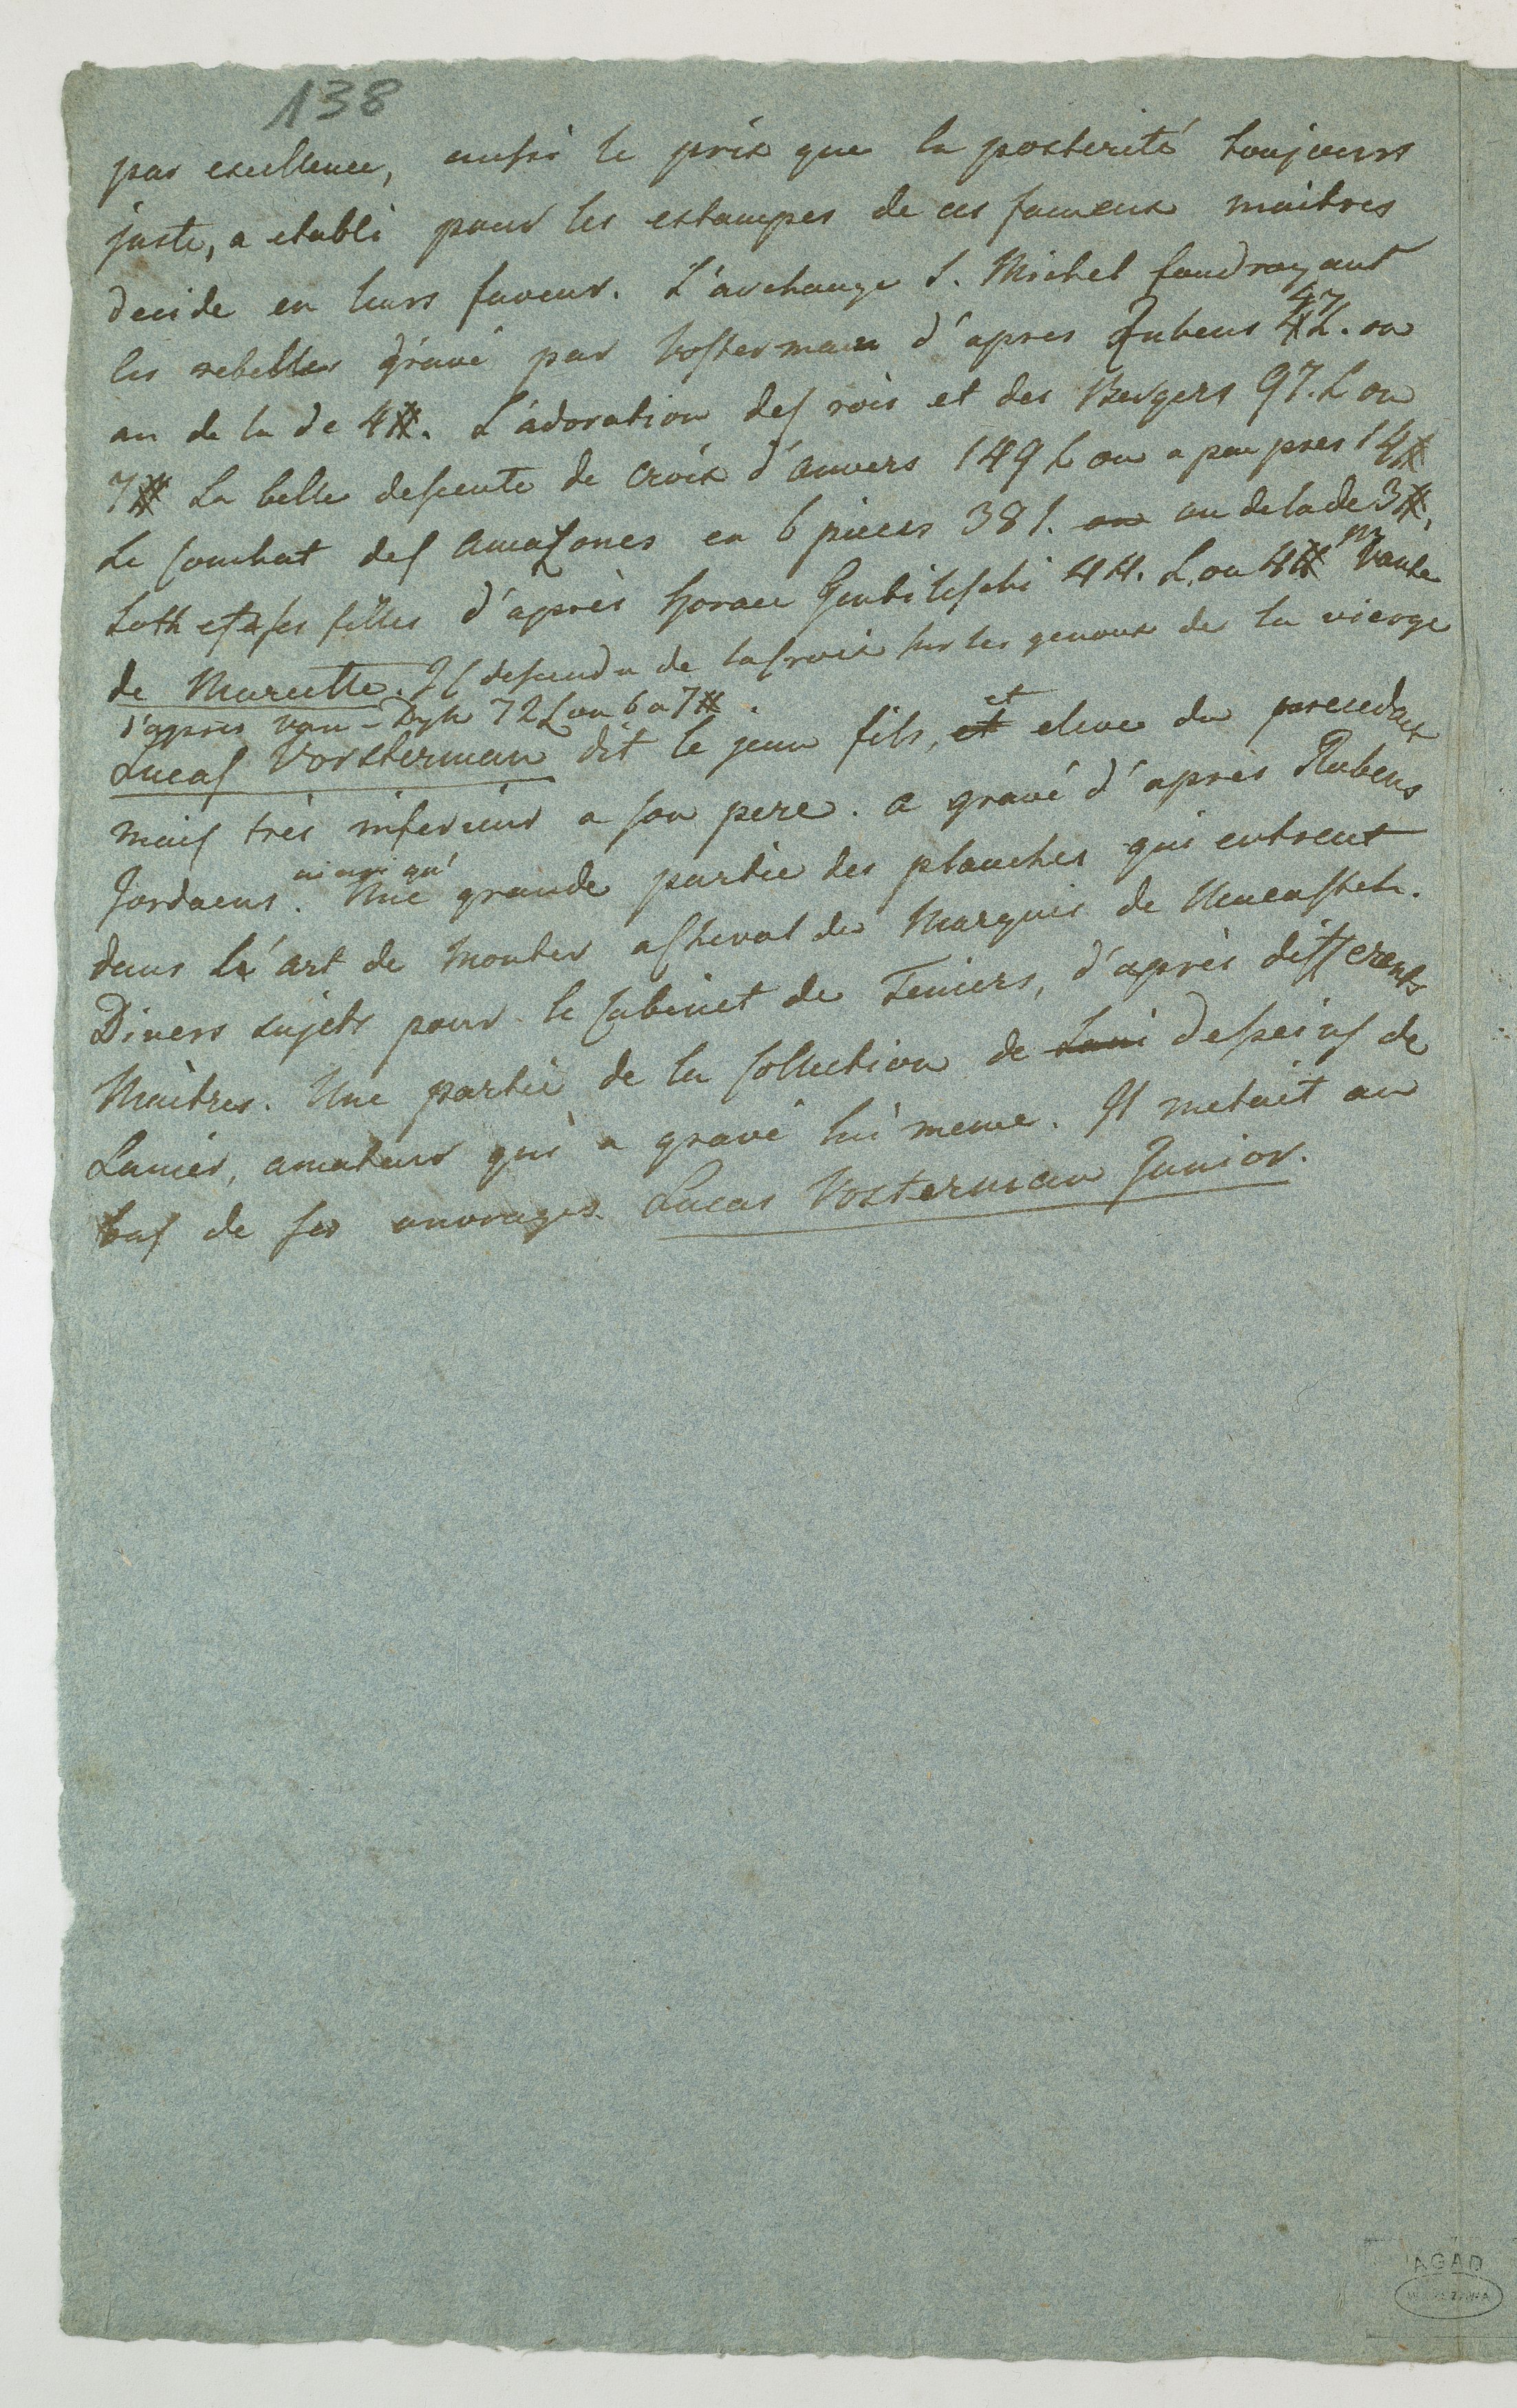 138
par excellence, aussi le prix que la posterité toujours
juste, a etabli pour les estampes de ces fameux maitres
decide en leurs faveur. L'archange S. Michel foudroyant
les rebelles gravé par Vosterman d'apres Rubens 47 L. ou
au de la de 4#. L'adoration des rois et des Bergers 97. L ou
7# La belle descente de croix d'anvers 149 L ou a peu pres 14#
Le Combat des Amazones en 6 pieces 38 l. ou au dela de 3#,
Loth et ses filles d'après Horace Gentileschi 44. L. ou 4# Vante
de Mariette. JC descendu de la Croix sur les genoux de la vierge
d'apres Van-Dyk 72 L ou 6 a 7#.
Lucas Vorsterman dit le jeun fils, et et eleve du precedant
mais très inferieur a son pere. a gravé d'après Rubens
Jordaens. ainsi qu' Une grande partie des planches qui entrent
dans l'art de monter a cheval du Marquis de Neucastel.
Divers sujets pour le Cabinet de Teniers, d'après differents
Maitres. Une partie de la Collection de Lani desseins de
Lanier, amateur qui a gravé lui meme. Il metait au
bas de ses ouvrages Lucas Vosterman Junior.
AGAD
WARSZAWA